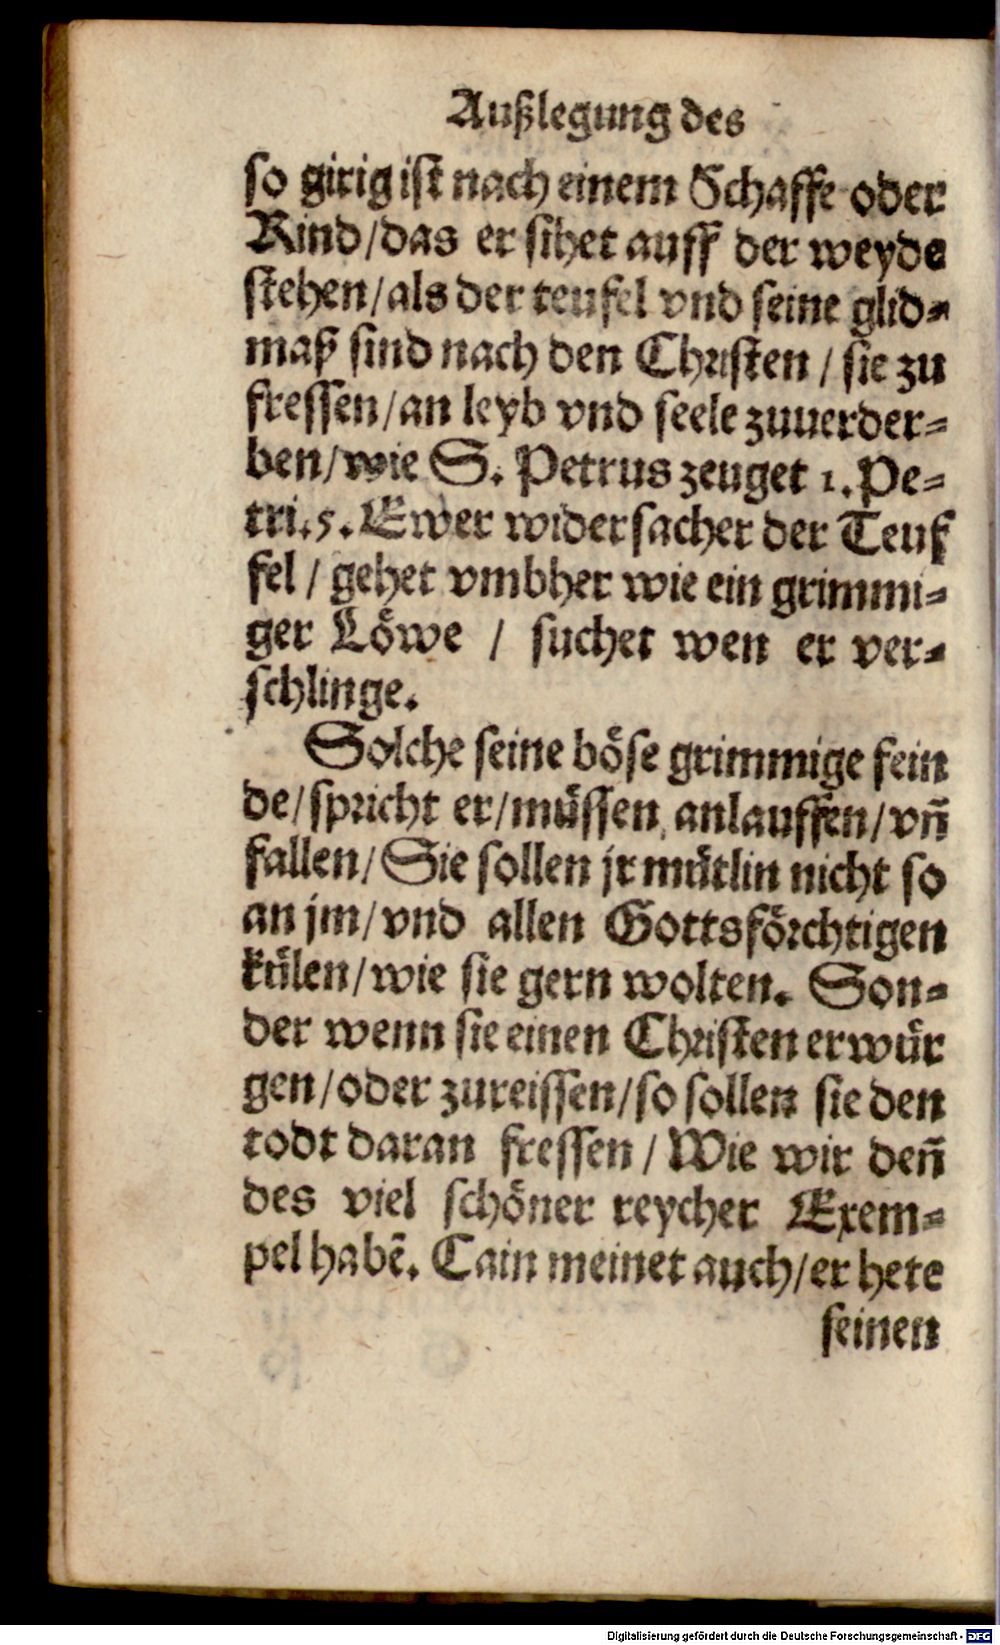 Außlegung des
so girig ist nach einem Schaffe oder
Rind/das er sihet auff der weyde
stehen/als der teufel vnd seine glid⸗
maß sind nach den Christen / sie zu
fressen/an leyb vnd seele zuuerder⸗
ben/wie S. Petrus zeuget 1. Pe⸗
tri.5. Ewer widersacher der Teuf
fel / gehet vmbher wie ein grimmi⸗
ger Löwe / suchet wen er ver⸗
schlinge.
Solche seine böse grimmige fein
de/spricht er/müssen anlauffen/vñ
fallen/Sie sollen jr mütlin nicht so
an jm/vnd allen Gottsförchtigen
külen/wie sie gern wolten. Son⸗
der wenn sie einen Christen erwür
gen/oder zureissen/so sollen sie den
todt daran fressen / Wie wir deñ
des viel schöner reycher Exem⸗
pel habē. Cain meinet auch/er hete
seinen
Digitalisierung gefördert durch die Deutsche Forschungsgemeinschaft - DFG